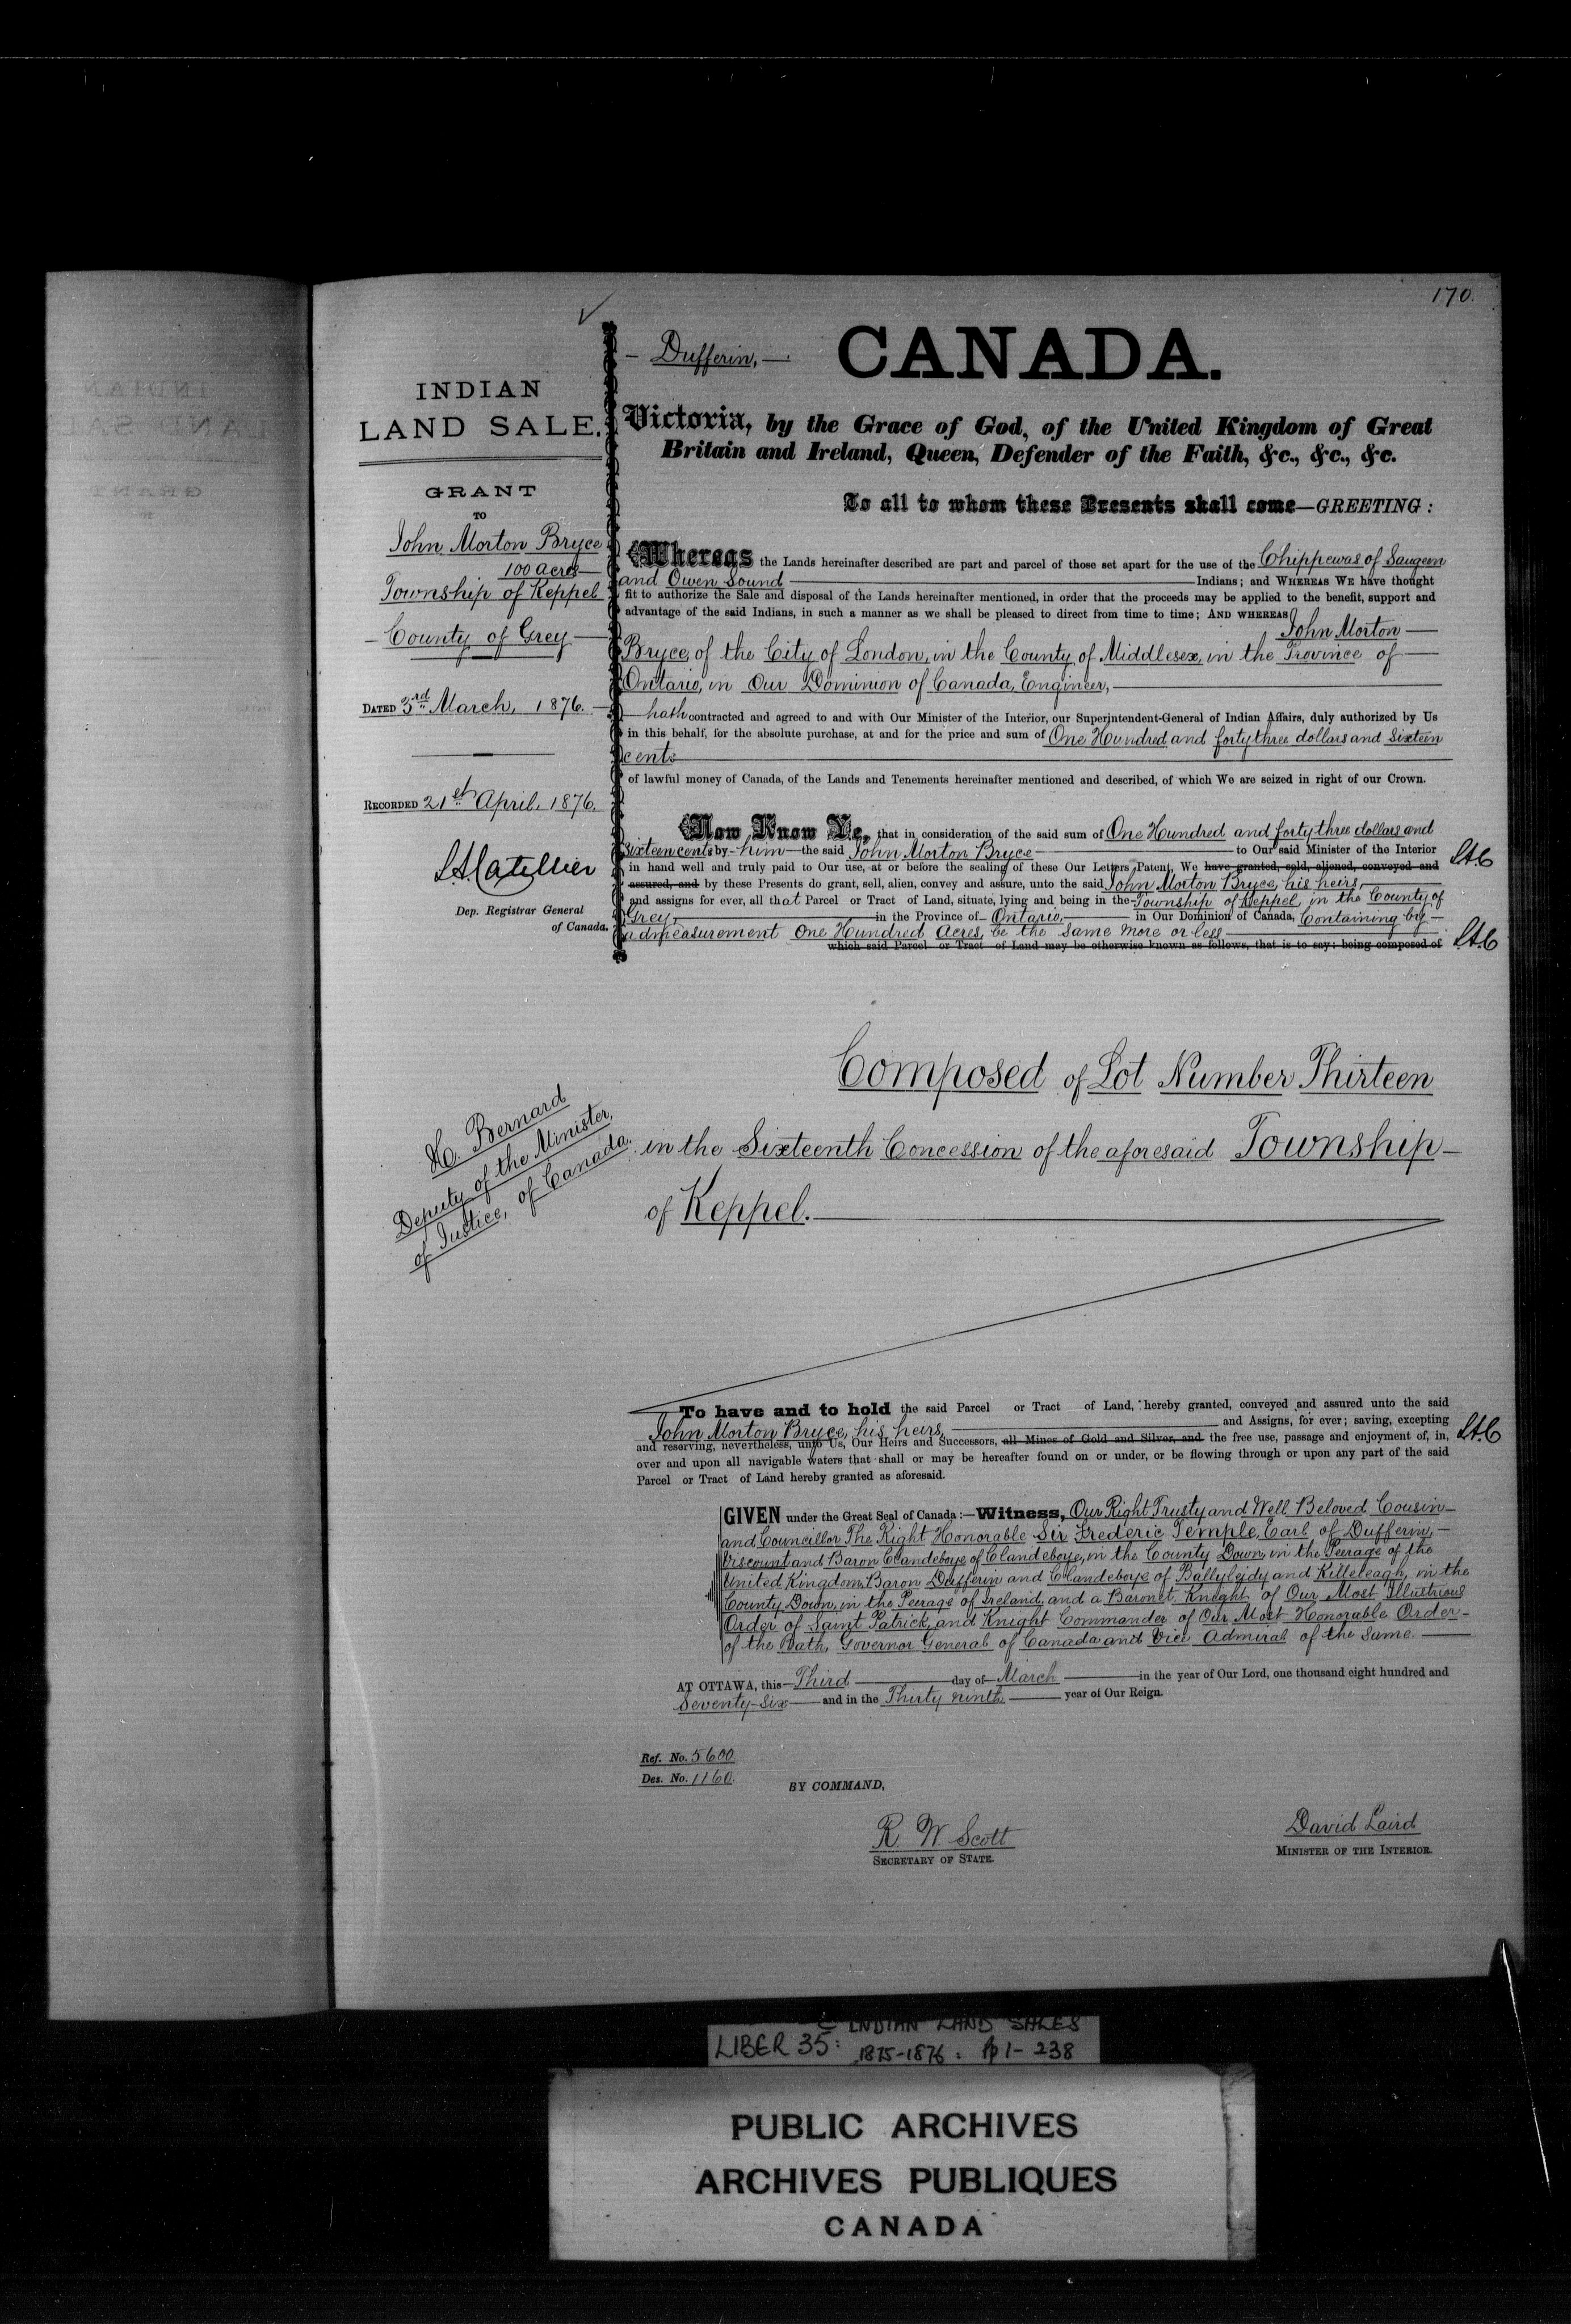 170.
INDIAN
LAND SALE.
GRANT
TO
John Morton Bryce
100 acres
Township of Keppel
County of Grey
DATED 3rd March, 1876.
RECORDED 21st April, 1876.
Dep. Registrar General
of Canada.
H. Bernard
Deputy of the Minister,
of Justice, of Canada.
Dufferin,
CANADA.
Victoria, by the Grace of God, of the United Kingdom of Great
Britain and Ireland, Queen, Defender of the Faith, &c., &c., &c.
To all to whom these Presents shall come—GREETING :
Whereas the Lands hereinafter described are part and parcel of those set apart for the use of the Chippewas of Saugeen
and Owen Sound Indians; and WHEREAS WE have thought
fit to authorize the Sale and disposal of the Lands hereinafter mentioned, in order that the proceeds may be applied to the benefit, support and
advantage of the said Indians, in such a manner as we shall be pleased to direct from time to time; AND WHEREAS
John Morton
Bryce, of the City of London, in the County of Middlesex, in the Province of
Ontario, in Our Dominion of Canada, Engineer,
hath contracted and agreed to and with Our Minister of the Interior, our Superintendent-General of Indian Affairs, duly authorized by Us
in this behalf, for the absolute purchase, at and for the price and sum of One Hundred and forty three dollars and Sixteen
cents
of lawful money of Canada, of the Lands and Tenements hereinafter mentioned and described, of which We are seized in right of our Crown.
Now Know Ye, that in consideration of the said sum of One Hundred and forty three dollars and
Sixteen cents by him the said John Morton Bryce to Our said Minister of the Interior
in hand well and truly paid to Our use, at or before the sealing of these Our Letters Patent, We have granted, sold, aliened, conveyed and
assured, and by these Presents do grant, sell, alien, convey and assure, unto the said John Morton Bryce, his heirs,
and assigns for ever, all that Parcel or Tract of Land, situate, lying and being in the Township of Keppel, in the County of
Grey, in the Province of Ontario, in Our Dominion of Canada, Containing by
admeasurement One Hundred Acres, be the same more or less
which said Parcel or Tract of Land may be otherwise known as follows, that is to say: being composed of
Composed of Lot Number Thirteen
in the Sixteenth Concession of the aforesaid Township
of Keppel.
To have and to hold the said Parcel or Tract of Land, hereby granted, conveyed and assured unto the said
John Morton Bryce, his heirs, and Assigns, for ever; saving, excepting
and reserving, nevertheless, unto Us, Our Heirs and Successors, all Mines of Gold and Silver, and the free use, passage and enjoyment of, in,
over and upon all navigable waters that shall or may be hereafter found on or under, or be flowing through or upon any part of the said
Parcel or Tract of Land hereby granted as aforesaid.
GIVEN under the Great Seal of Canada :—Witness, Our Right Trusty and Well Beloved Cousin
and Councillor The Right Honorable Sir Frederic Temple, Earl of Dufferin,
Viscount and Baron Clandeboye of Clandeboye, in the County Down, in the Peerage of the
United Kingdom, Baron Dufferin and Clandeboye of Ballyleidy and Killeleagh, in the
County Down, in the Peerage of Ireland, and a Baronet, Knight of Our Most Illustrious
Order of Saint Patrick, and Knight Commander of Our Most Honorable Order
of the Bath, Governor General of Canada and Vice Admiral of the same.
AT OTTAWA, this Third day of March in the year of Our Lord, one thousand eight hundred and
Seventy-Six and in the Thirty ninth year of Our Reign.
Ref. No. 5600
Des. No. 1160.
BY COMMAND,
R. W. Scott
SECRETARY OF STATE.
David Laird
MINISTER OF THE INTERIOR.
INDIAN LAND SALES
LIBER 35: 1875-1876: pp 1-238
PUBLIC ARCHIVES
ARCHIVES PUBLIQUES
CANADA